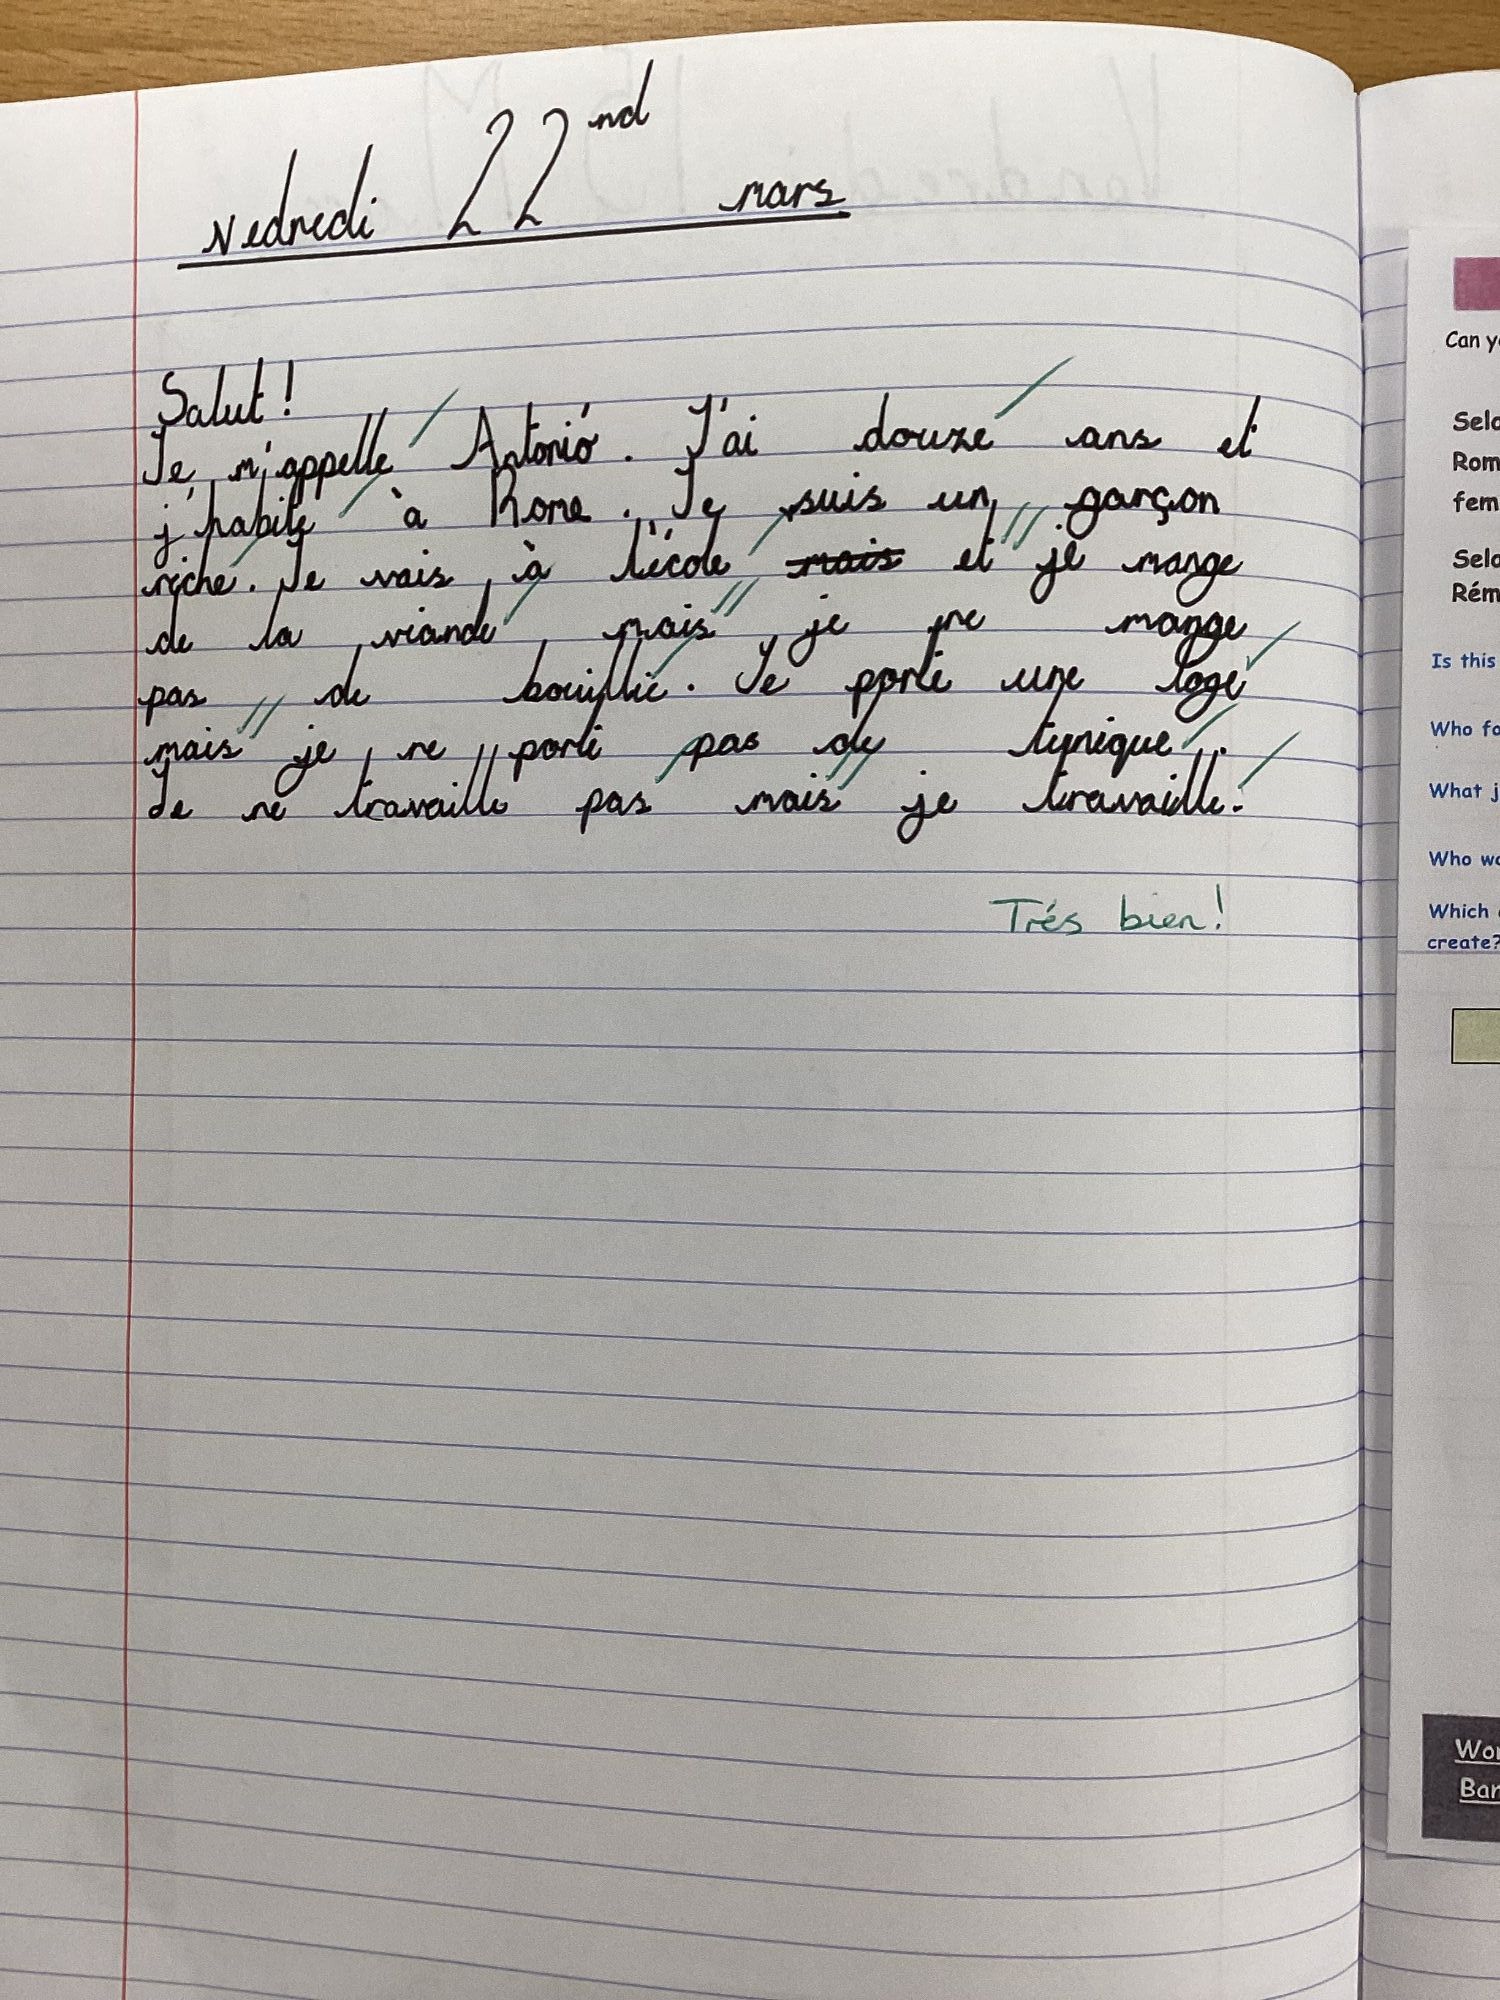 Vedredi 22nd mars
Salut!
Je m'appelle Antonió. J'ai douze ans et
j'habite à Rome. Je suis un garçon
riche. Je vais à l'école mais et je mange
de la viande, mais je ne mange
pas de bouillie. Je porte une toge
mais je ne porte pas de tynique.
Je ne travaille pas mais je travaille.
Trés bien!
Can y
Selo
Rom
fem
Selo
Rém
Is this
Who fo
What j
Who wo
Which
create?
Wor
Ban